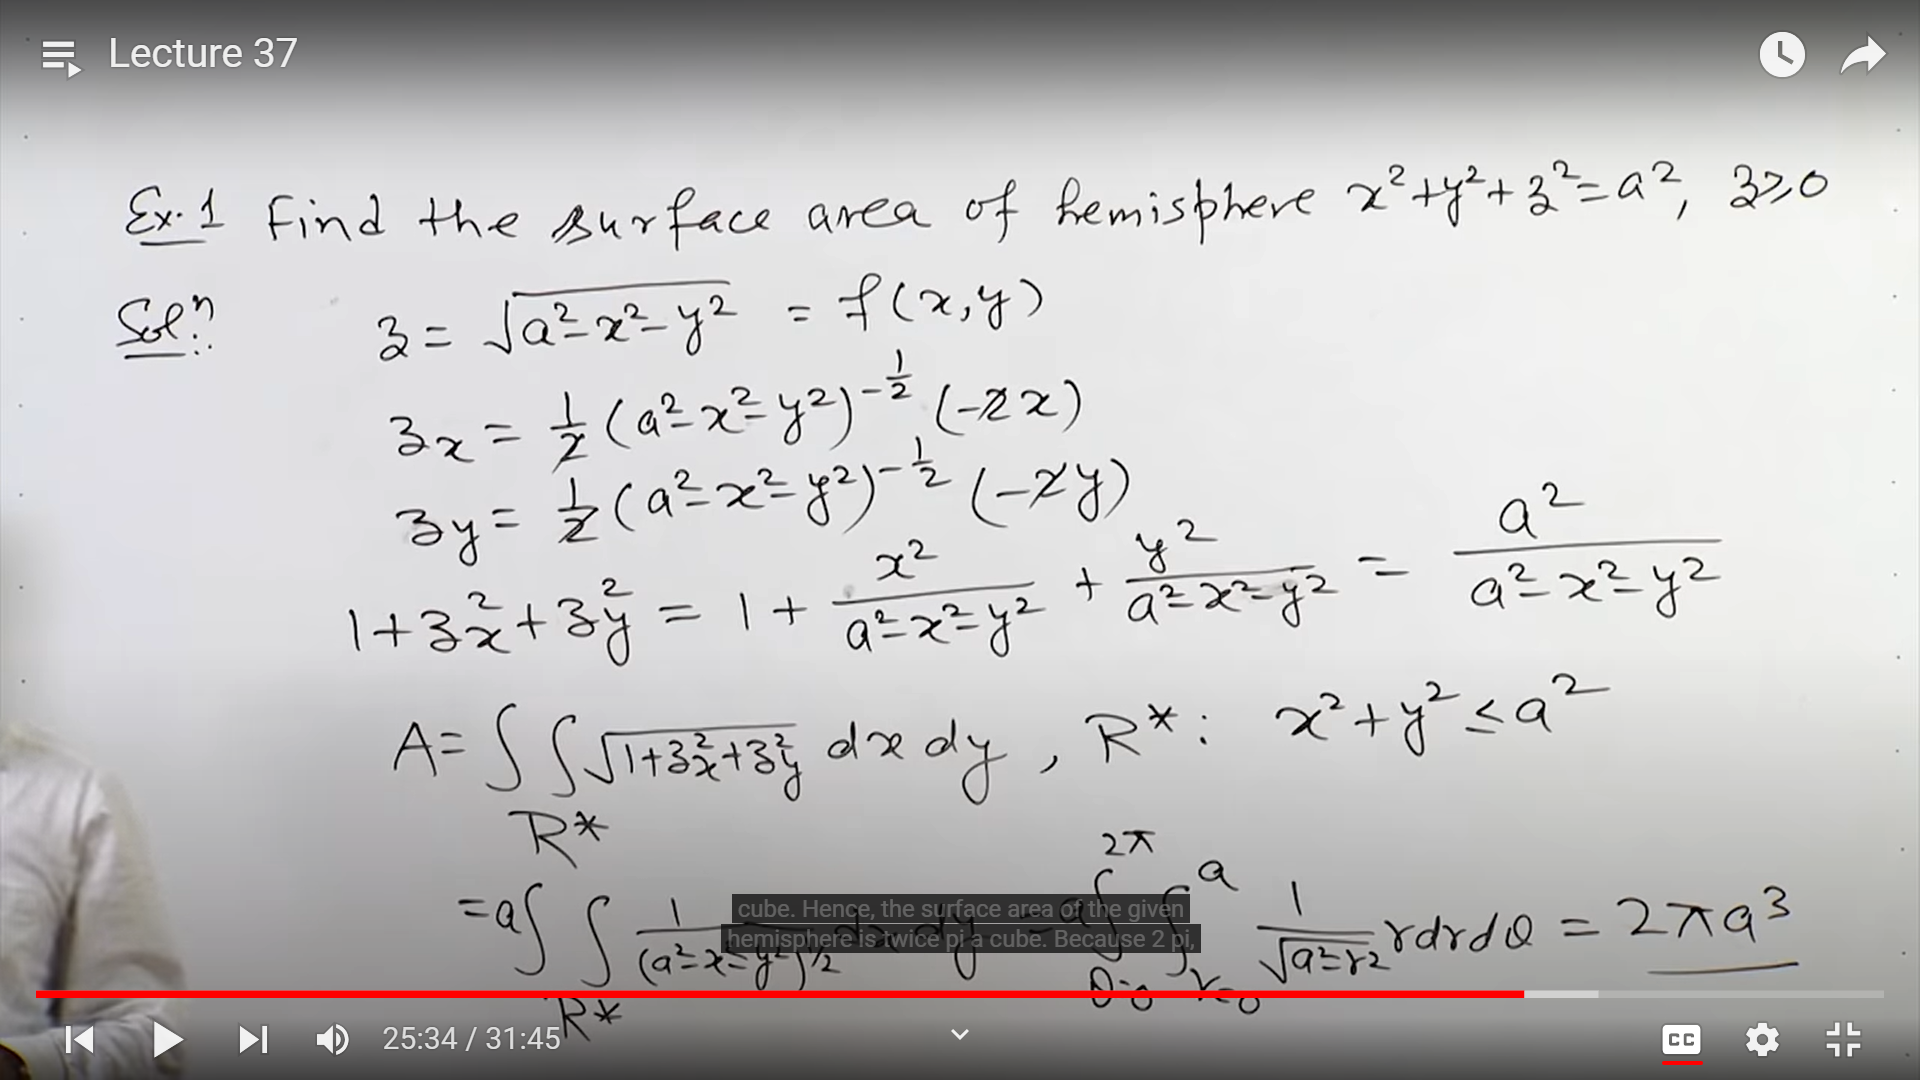 Lecture 37
Ex.1 Find the surface area of hemisphere x²+y²+z²=a², z≥0
Solⁿ:. z = √(a²-x²-y²) = f(x,y)
zx = 1/2 (a²-x²-y²)^-1/2 (-2x)
zy = 1/2 (a²-x²-y²)^-1/2 (-2y)
1+zx²+zy² = 1 + x²/(a²-x²-y²) + y²/(a²-x²-y²) = a²/(a²-x²-y²)
A = ∫∫R* √(1+zx²+zy²) dx dy , R*: x²+y² ≤ a²
= a∫∫R* 1/(a²-x²-y²)^1/2 dx dy = a∫θ=0^2π ∫r=0^a 1/√(a²-r²) r dr dθ = 2πa³
cube. Hence, the surface area of the given
hemisphere is twice pi a cube. Because 2 pi,
25:34 / 31:45
CC